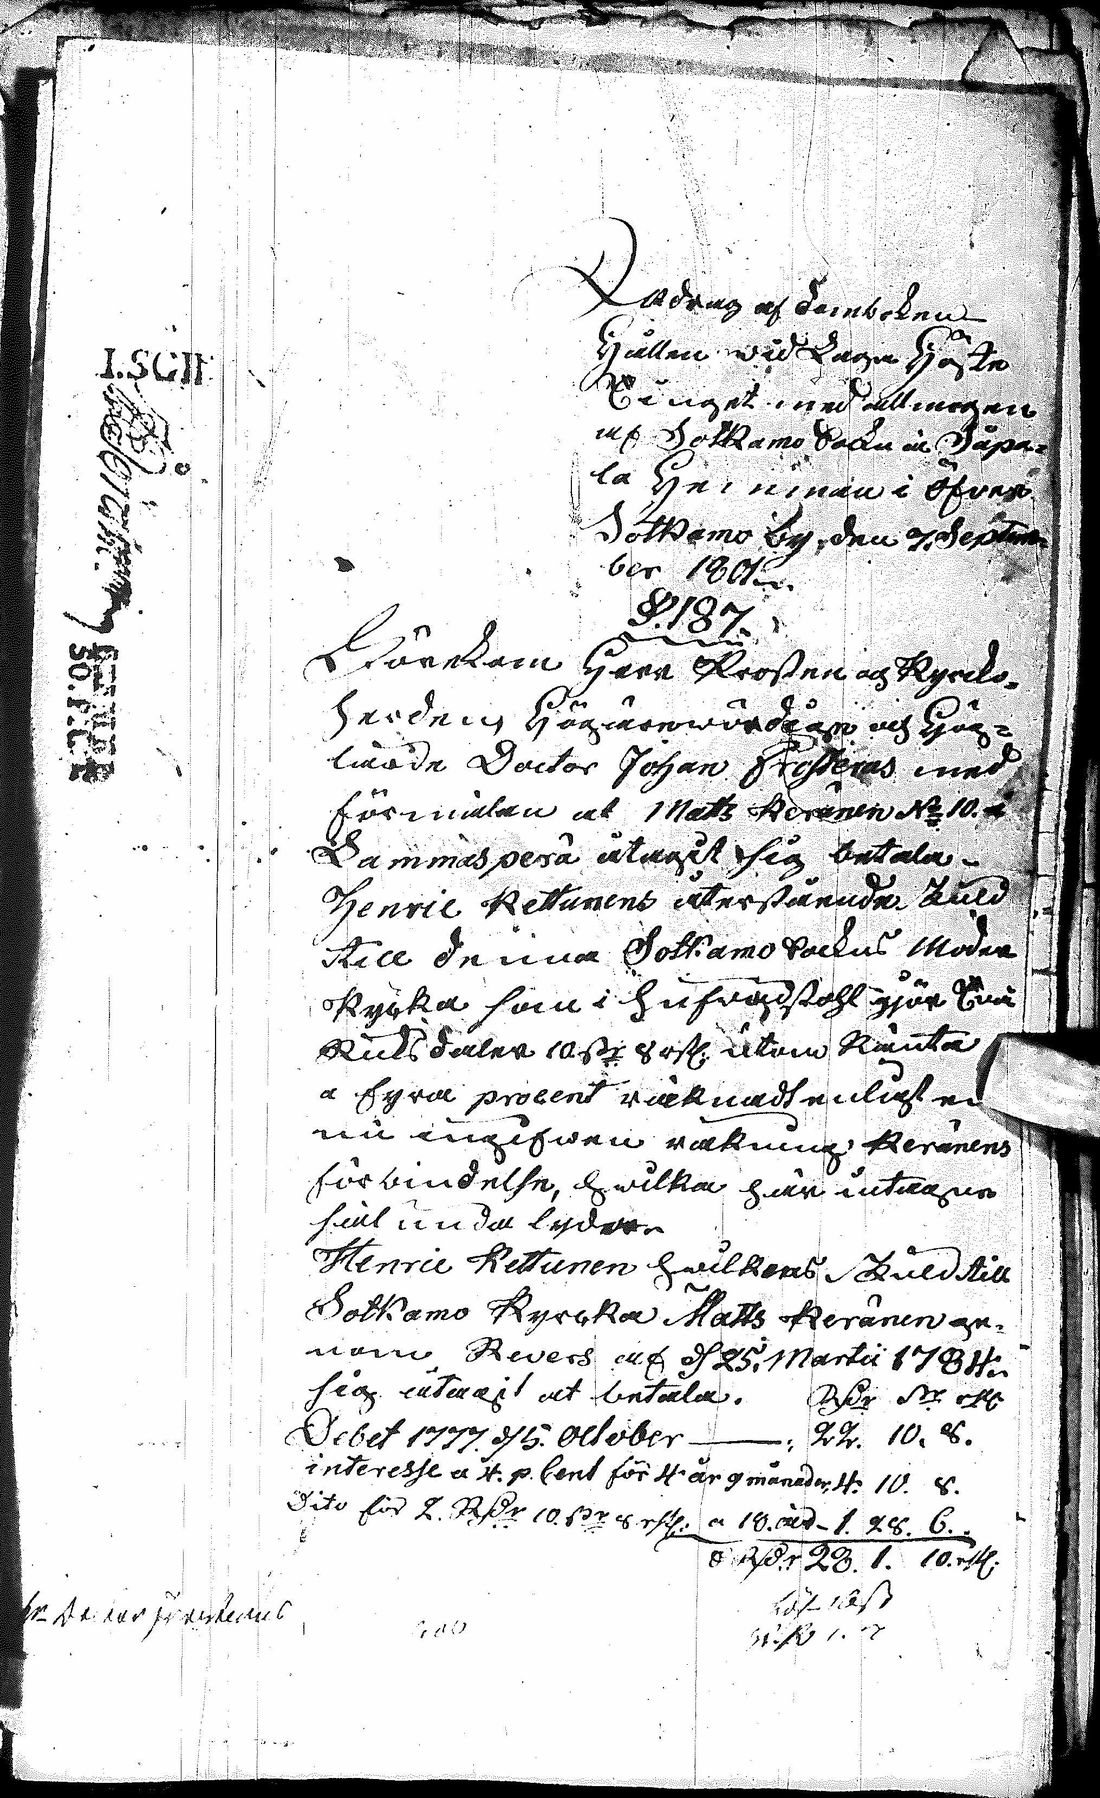 Utdrag af domboken
Hållen vid Laga Höste
Tinget med allmogen
af Sotkamo Sockn å Säpä-
lä Hemman i Öfver
Sotkamo by, den 7. Septem-
ber 1801.
§. 187.
Förekom Herr Prosten och Kyrcko-
herden, Högärevördige och Hög-
lärde Doctor Johan Frosterus med
förmälan at Matts Keränen No 10. i
Lammasperä åtagit sig betala
Henric Kettunens återstående skuld
till denna Sotkamo Sockns Moder
Kyrka som i hufvudstohl gjör Två
Riksdaler 10 sk: 8 rst: utom Ränta
a fyra procent räknadt enligt en
nu ingifven räkning Keränens
förbindelse, hvilka här intagne
sålunda lyda
Henric Kettunen hvilkens skuld till
Sotkamo Kyrcka Matts Keränen ge-
nom Revers af d 25. Martii 1784
sig åtagit at betala. Rdr sk: rst:
Debet 1777. d 5. October — 22. 10. 8.
interesse a 4. p. Cent för 4 år 9 månader 4. 10. 8.
Dito för 2. Rdr 10. sk: 8 rst: a 18. år - 1. 28. 6.
Rdr 28. 1. 10. rst: